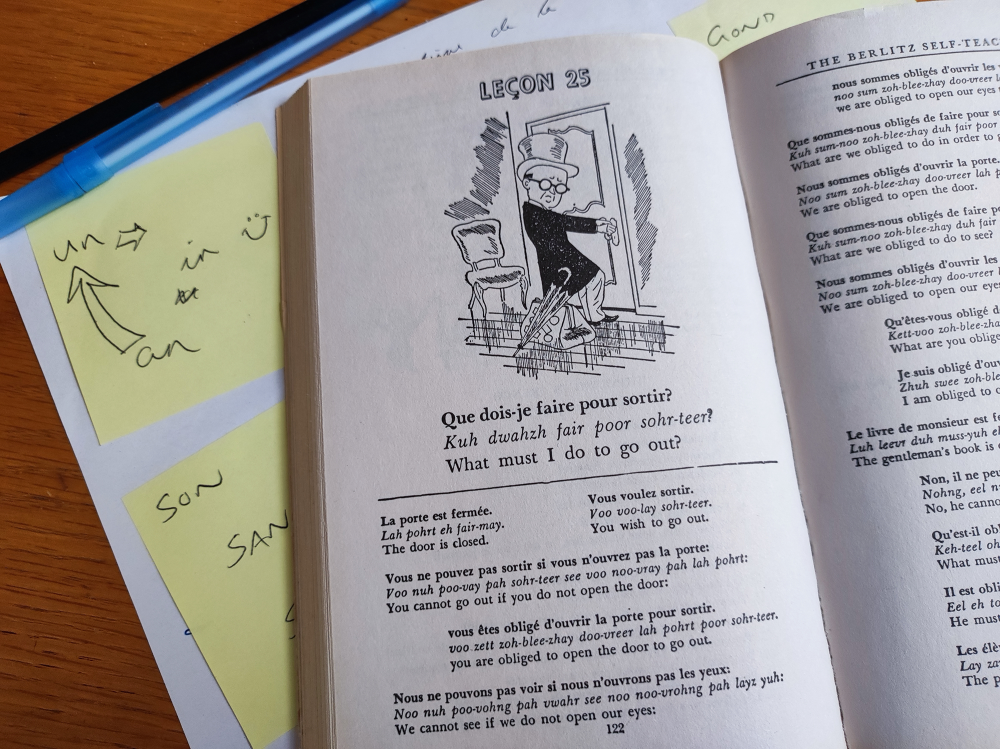 de la
GOND
un
in
an
SON
SAN
LEÇON 25
Que dois-je faire pour sortir?
Kuh dwahzh fair poor sohr-teer?
What must I do to go out?
La porte est fermée.
Lah pohrt eh fair-may.
The door is closed.
Vous voulez sortir.
Voo voo-lay sohr-teer.
You wish to go out.
Vous ne pouvez pas sortir si vous n'ouvrez pas la porte:
Voo nuh poo-vay pah sohr-teer see voo noo-vray pah lah pohrt:
You cannot go out if you do not open the door:
vous êtes obligé d'ouvrir la porte pour sortir.
voo zett zoh-blee-zhay doo-vreer lah pohrt poor sohr-teer.
you are obliged to open the door to go out.
Nous ne pouvons pas voir si nous n'ouvrons pas les yeux:
Noo nuh poo-vohng pah vwahr see noo noo-vrohng pah layz yuh:
We cannot see if we do not open our eyes:
122
THE BERLITZ
nous sommes obligés d'ouvrir les
noo sum zoh-blee-zhay doo-vreer
we are obliged to open our eyes
Que sommes-nous obligés de faire pour
Kuh sum-noo zoh-blee-zhay duh fair poor
What are we obliged to do in order to
Nous sommes obligés d'ouvrir la porte.
Noo sum zoh-blee-zhay doo-vreer lah
We are obliged to open the door.
Que sommes-nous obligés de faire
Kuh sum-noo zoh-blee-zhay duh fair
What are we obliged to do to see?
Nous sommes obligés d'ouvrir les
Noo sum zoh-blee-zhay doo-vreer
We are obliged to open our eyes
Qu'êtes-vous obligé
Kett-voo
What are you
Je suis obligé
Zhuh swee
I am obliged to
Le livre de monsieur est
Luh leevr duh muss-yuh
The gentleman's book is
Non, il ne
Nohng, eel
No, he
Qu'est-il
Keh-teel
What
Il est
Eel eh
He
Les
Lay
The